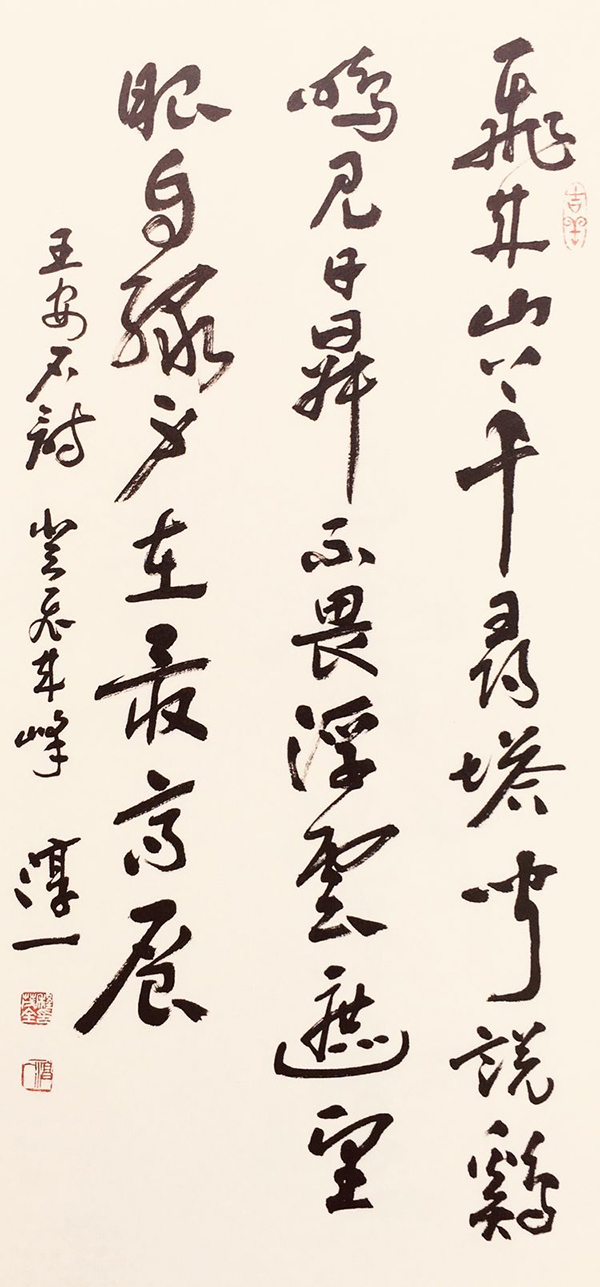 飛来山上千尋塔聞說鷄
鳴見日昇不畏浮雲遮望
眼自緣身在最高層
王安石詩 登飛来峰 淳一
吉羊